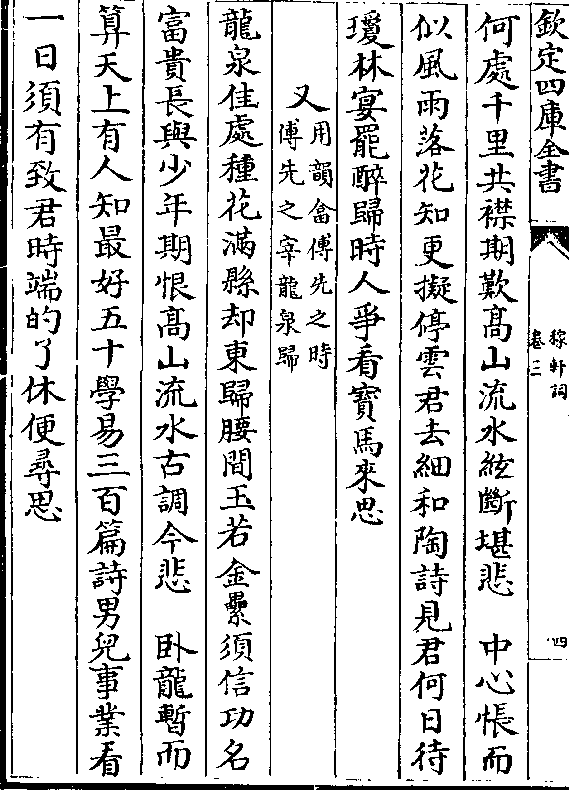 欽定四庫全書
稼軒詞
卷三
四
何處千里共襟期歎髙山流水絃斷堪悲　中心悵而
似風雨落花知更擬停雲君去細和陶詩見君何日待
瓊林宴罷醉歸時人爭看寳馬來思
又
用韻畣傅先之時
傅先之宰龍泉歸
龍泉佳處種花滿縣却東歸腰間玉若金纍須信功名
富貴長與少年期恨髙山流水古調今悲　卧龍暫而
算天上有人知最好五十學易三百篇詩男兒事業看
一日須有致君時端的了休便尋思